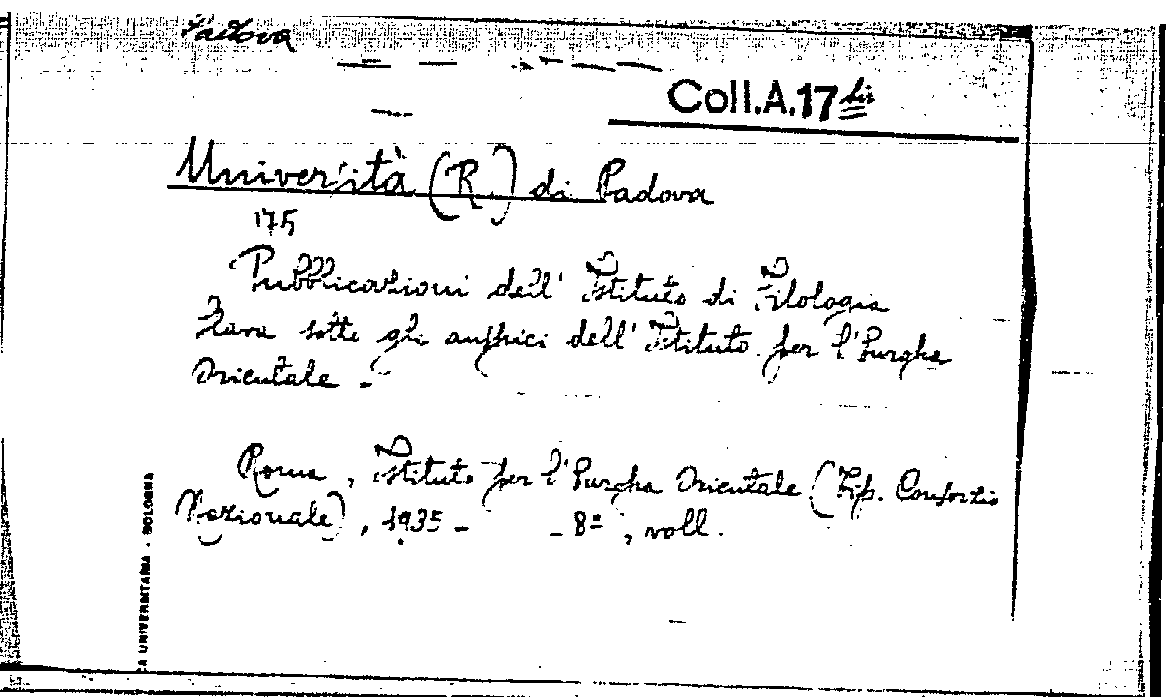 Padova
Coll.A.17 bis
Università (R.) di Padova
175
Pubblicazioni dell' Istituto di Filologia
slava sotto gli auspici dell' Istituto per l'Europa
Orientale -
Roma, Istituto per l'Europa Orientale (Tip. Consorzio
Nazionale), 1935 - - 8º, voll.
CA UNIVERSITARIA - BOLOGNA